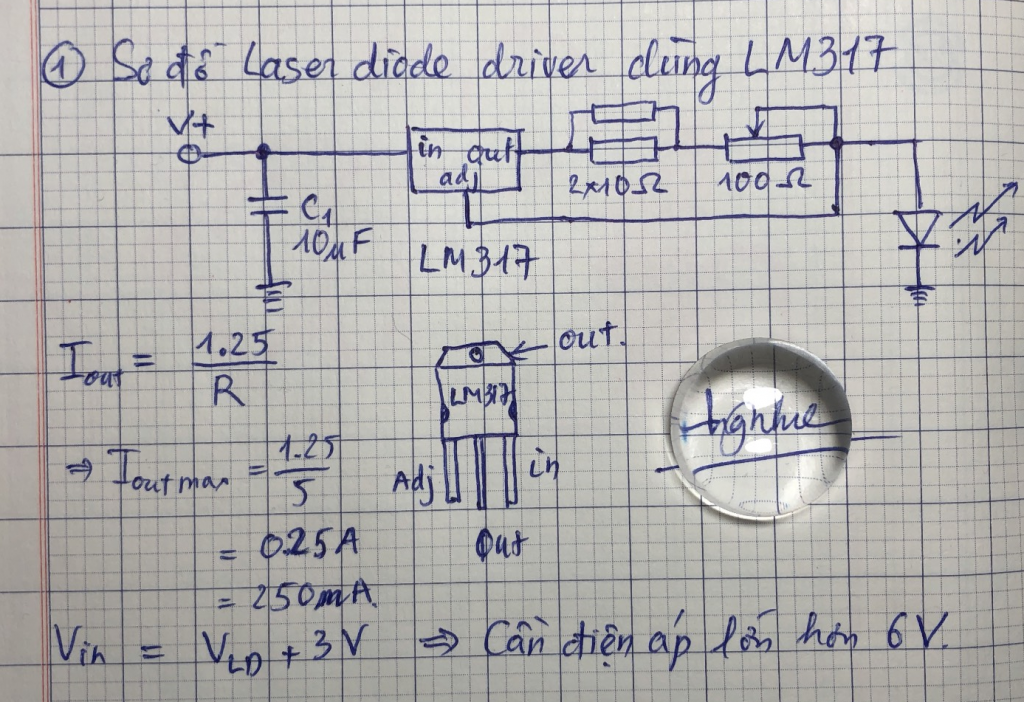 ① Sơ đồ Laser diode driver dùng LM317
V+
in out
adj
2x10Ω
100Ω
C1
10µF
LM317
Iout = 1.25 / R
out.
LM317
⇒ Ioutmax = 1.25 / 5
Adj
in
= 0.25A
Out
= 250mA.
Vin = VLD + 3V ⇒ Cần điện áp lớn hơn 6V.